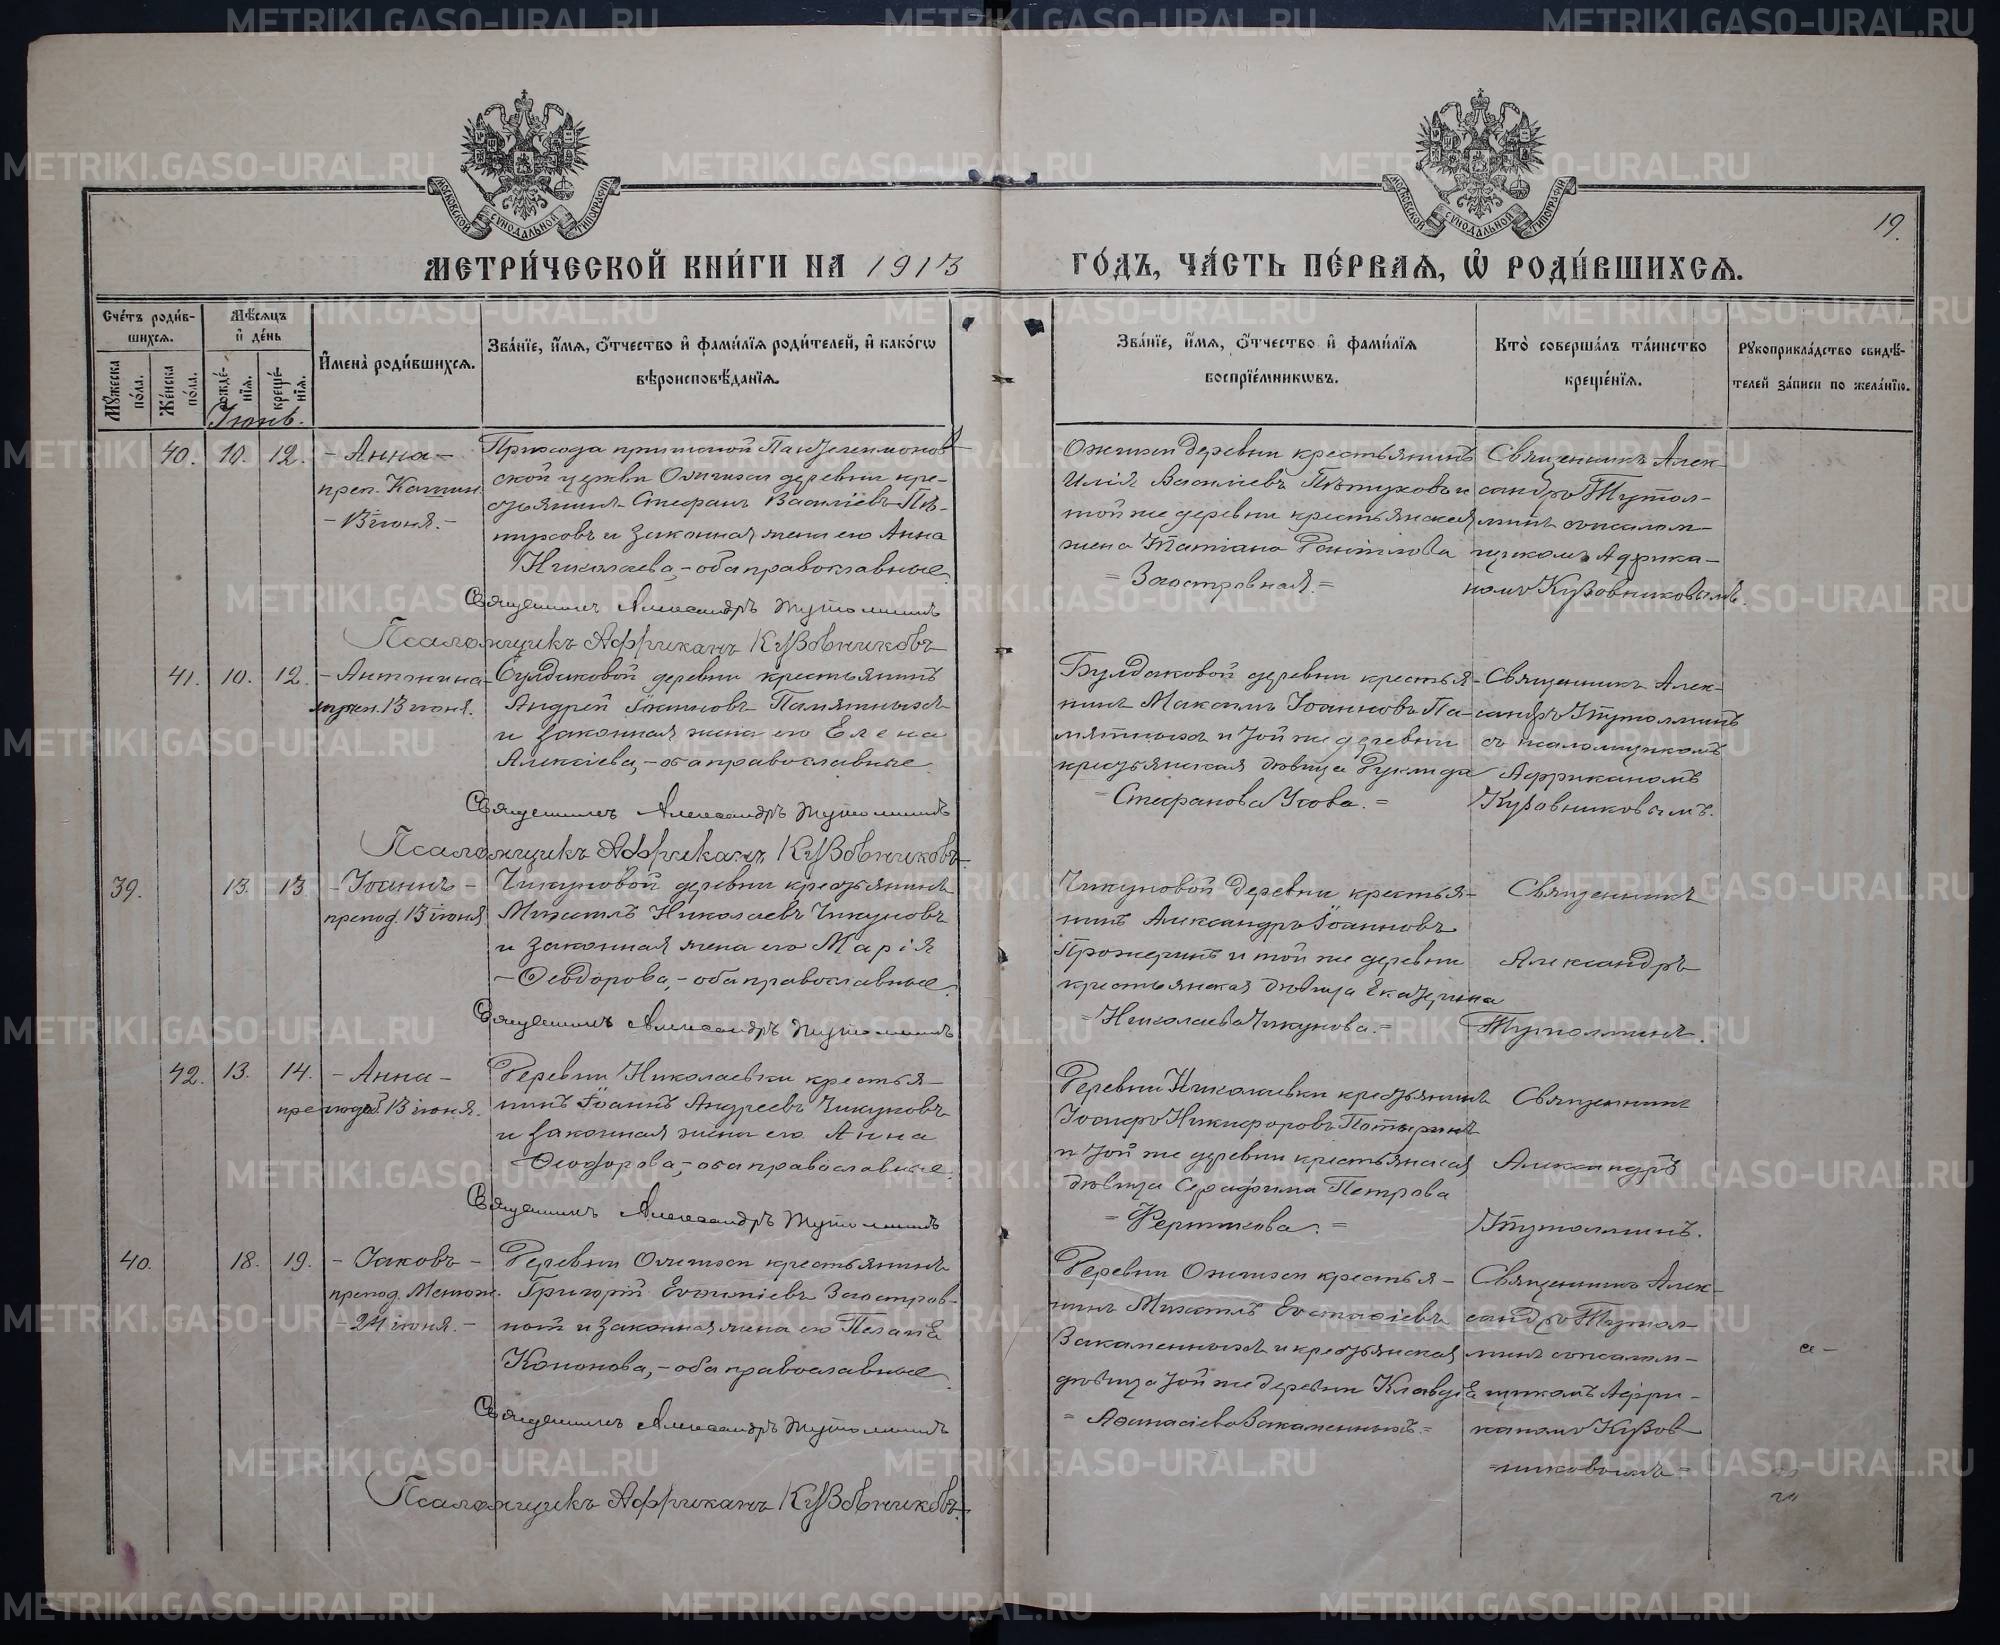 МОСКОВСКОЙ СѴНОДАЛЬНОЙ ТИПОГРАФІИ
МОСКОВСКОЙ СѴНОДАЛЬНОЙ ТИПОГРАФІИ
19.
МЕТРИ́ЧЕСКОЙ КНИ́ГИ НА 1913
ГО́ДЪ, ЧА́СТЬ ПЕ́РВАѦ, Ѡ҆ РОДИ́ВШИХСѦ.
Сче́тъ роди́в-
шихсѧ.
Мꙋ́жеска по́ла.
Же́нска по́ла.
Мѣ́сѧцъ
и҆ де́нь
рожде́-
нїѧ.
креще́-
нїѧ.
И҆мена̀ роди́вшихсѧ.
Зва́нїе, и҆́мѧ, ѻ҆́тчество и҆ фами́лїѧ роди́телей, и҆ како́гѡ
вѣроисповѣ́данїѧ.
Зва́нїе, и҆́мѧ, ѻ҆́тчество и҆ фами́лїѧ
воспрїе́мникѡвъ.
Кто̀ соверша́лъ та́инство
креще́нїѧ.
Рꙋкоприкла́дство свидѣ́-
телей за́писи по жела́нїю.
Іюнь.
40. 10. 12.
- Анна -
- 13 іюня. -
Прихода приписной Пантелеимонов
ской церкви деревни кре-
стьянинъ Стефанъ Василіевъ Пѣ-
туховъ и законная жена его Анна
Николаева, - оба православные.
Священникъ Александръ Тутолминъ
Псаломщикъ Африканъ Кузовниковъ
деревни крестьянинъ
Илія Василіевъ Пѣтуховъ и
той же деревни крестьянская
жена Татіана
= Заостровная. =
Священникъ Алек-
сандръ Тутол-
минъ съ псалом-
щикомъ Африка-
номъ Кузовниковымъ.
41. 10. 12.
- Антонина -
13 іюня.
Булдаковой деревни крестьянинъ
Андрей Іоанновъ Памятныхъ
и законная жена его Елена
Алексіева, - оба православные
Священникъ Александръ Тутолминъ
Псаломщикъ Африканъ Кузовниковъ
Булдаковой деревни крестья-
нинъ Максимъ Іоанновъ Па-
мятныхъ и той же деревни
крестьянская дѣвица
= Стефанова Усова. =
Священникъ Алек-
сандръ Тутолминъ
съ псаломщикомъ
Африканомъ
Кузовниковымъ.
39. 13. 13.
- Іоаннъ -
препод. 13 іюня
Чикуновой деревни крестьянинъ
Михаилъ Николаевъ Чикуновъ
и законная жена его Марія
- Ѳеодорова, - оба православные.
Священникъ Александръ Тутолминъ
Чикуновой деревни крестья-
нинъ Александръ Іоанновъ
Прожеринъ и той же деревни
крестьянская дѣвица Екатерина
= Николаева Чикунова. =
Священникъ
Александръ
Тутолминъ.
42. 13. 14.
- Анна -
преподоб. 13 іюня.
Деревни Николаевки крестья-
нинъ Іоаннъ Андреевъ Чикуновъ
и законная жена его Анна
Ѳеодорова, - оба православные.
Священникъ Александръ Тутолминъ
Деревни Николаевки крестьянинъ
Іосифъ Никифоровъ
и той же деревни крестьянская
дѣвица Серафима Петрова
= Фертикова. =
Священникъ
Александръ
Тутолминъ.
40. 18. 19.
- Іаковъ -
- 24 іюня. -
Деревни крестьянинъ
Григорій Евѳиміевъ Заостров-
ной и законная жена его Пелагія
Кононова, - оба православные.
Священникъ Александръ Тутолминъ
Псаломщикъ Африканъ Кузовниковъ.
Деревни крестья-
нинъ Михаилъ Евстафіевъ
Закаменныхъ и крестьянская
дѣвица той же деревни Клавдія
= Аѳанасіева Закаменныхъ. =
Священникъ Алек-
сандръ Тутол-
минъ съ псалом-
щикомъ Афри-
каномъ Кузов-
= никовымъ =
METRIKI.GASO-URAL.RU